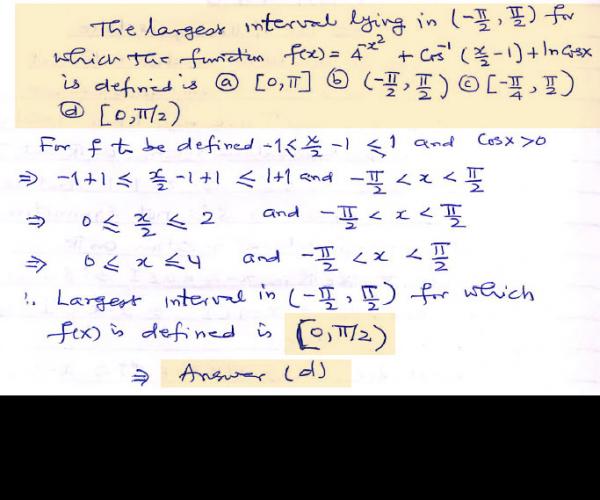 The largest interval lying in (-π/2, π/2) for
which the function f(x) = 4^-x² + Cos⁻¹ (x/2 -1) + ln Cosx
is defined is ⓐ [0,π] ⓑ (-π/2, π/2) ⓒ [-π/4, π/2)
ⓓ [0,π/2)
For f to be defined -1 ⩽ x/2 -1 ⩽ 1 and Cosx>0
⇒ -1+1 ⩽ x/2 -1+1 ⩽ 1+1 and -π/2 < x < π/2
⇒ 0 ⩽ x/2 ⩽ 2 and -π/2 < x < π/2
⇒ 0 ⩽ x ⩽ 4 and -π/2 < x < π/2
∴ Largest interval in (-π/2, π/2) for which
f(x) is defined is [0,π/2)
⇒ Answer (d)